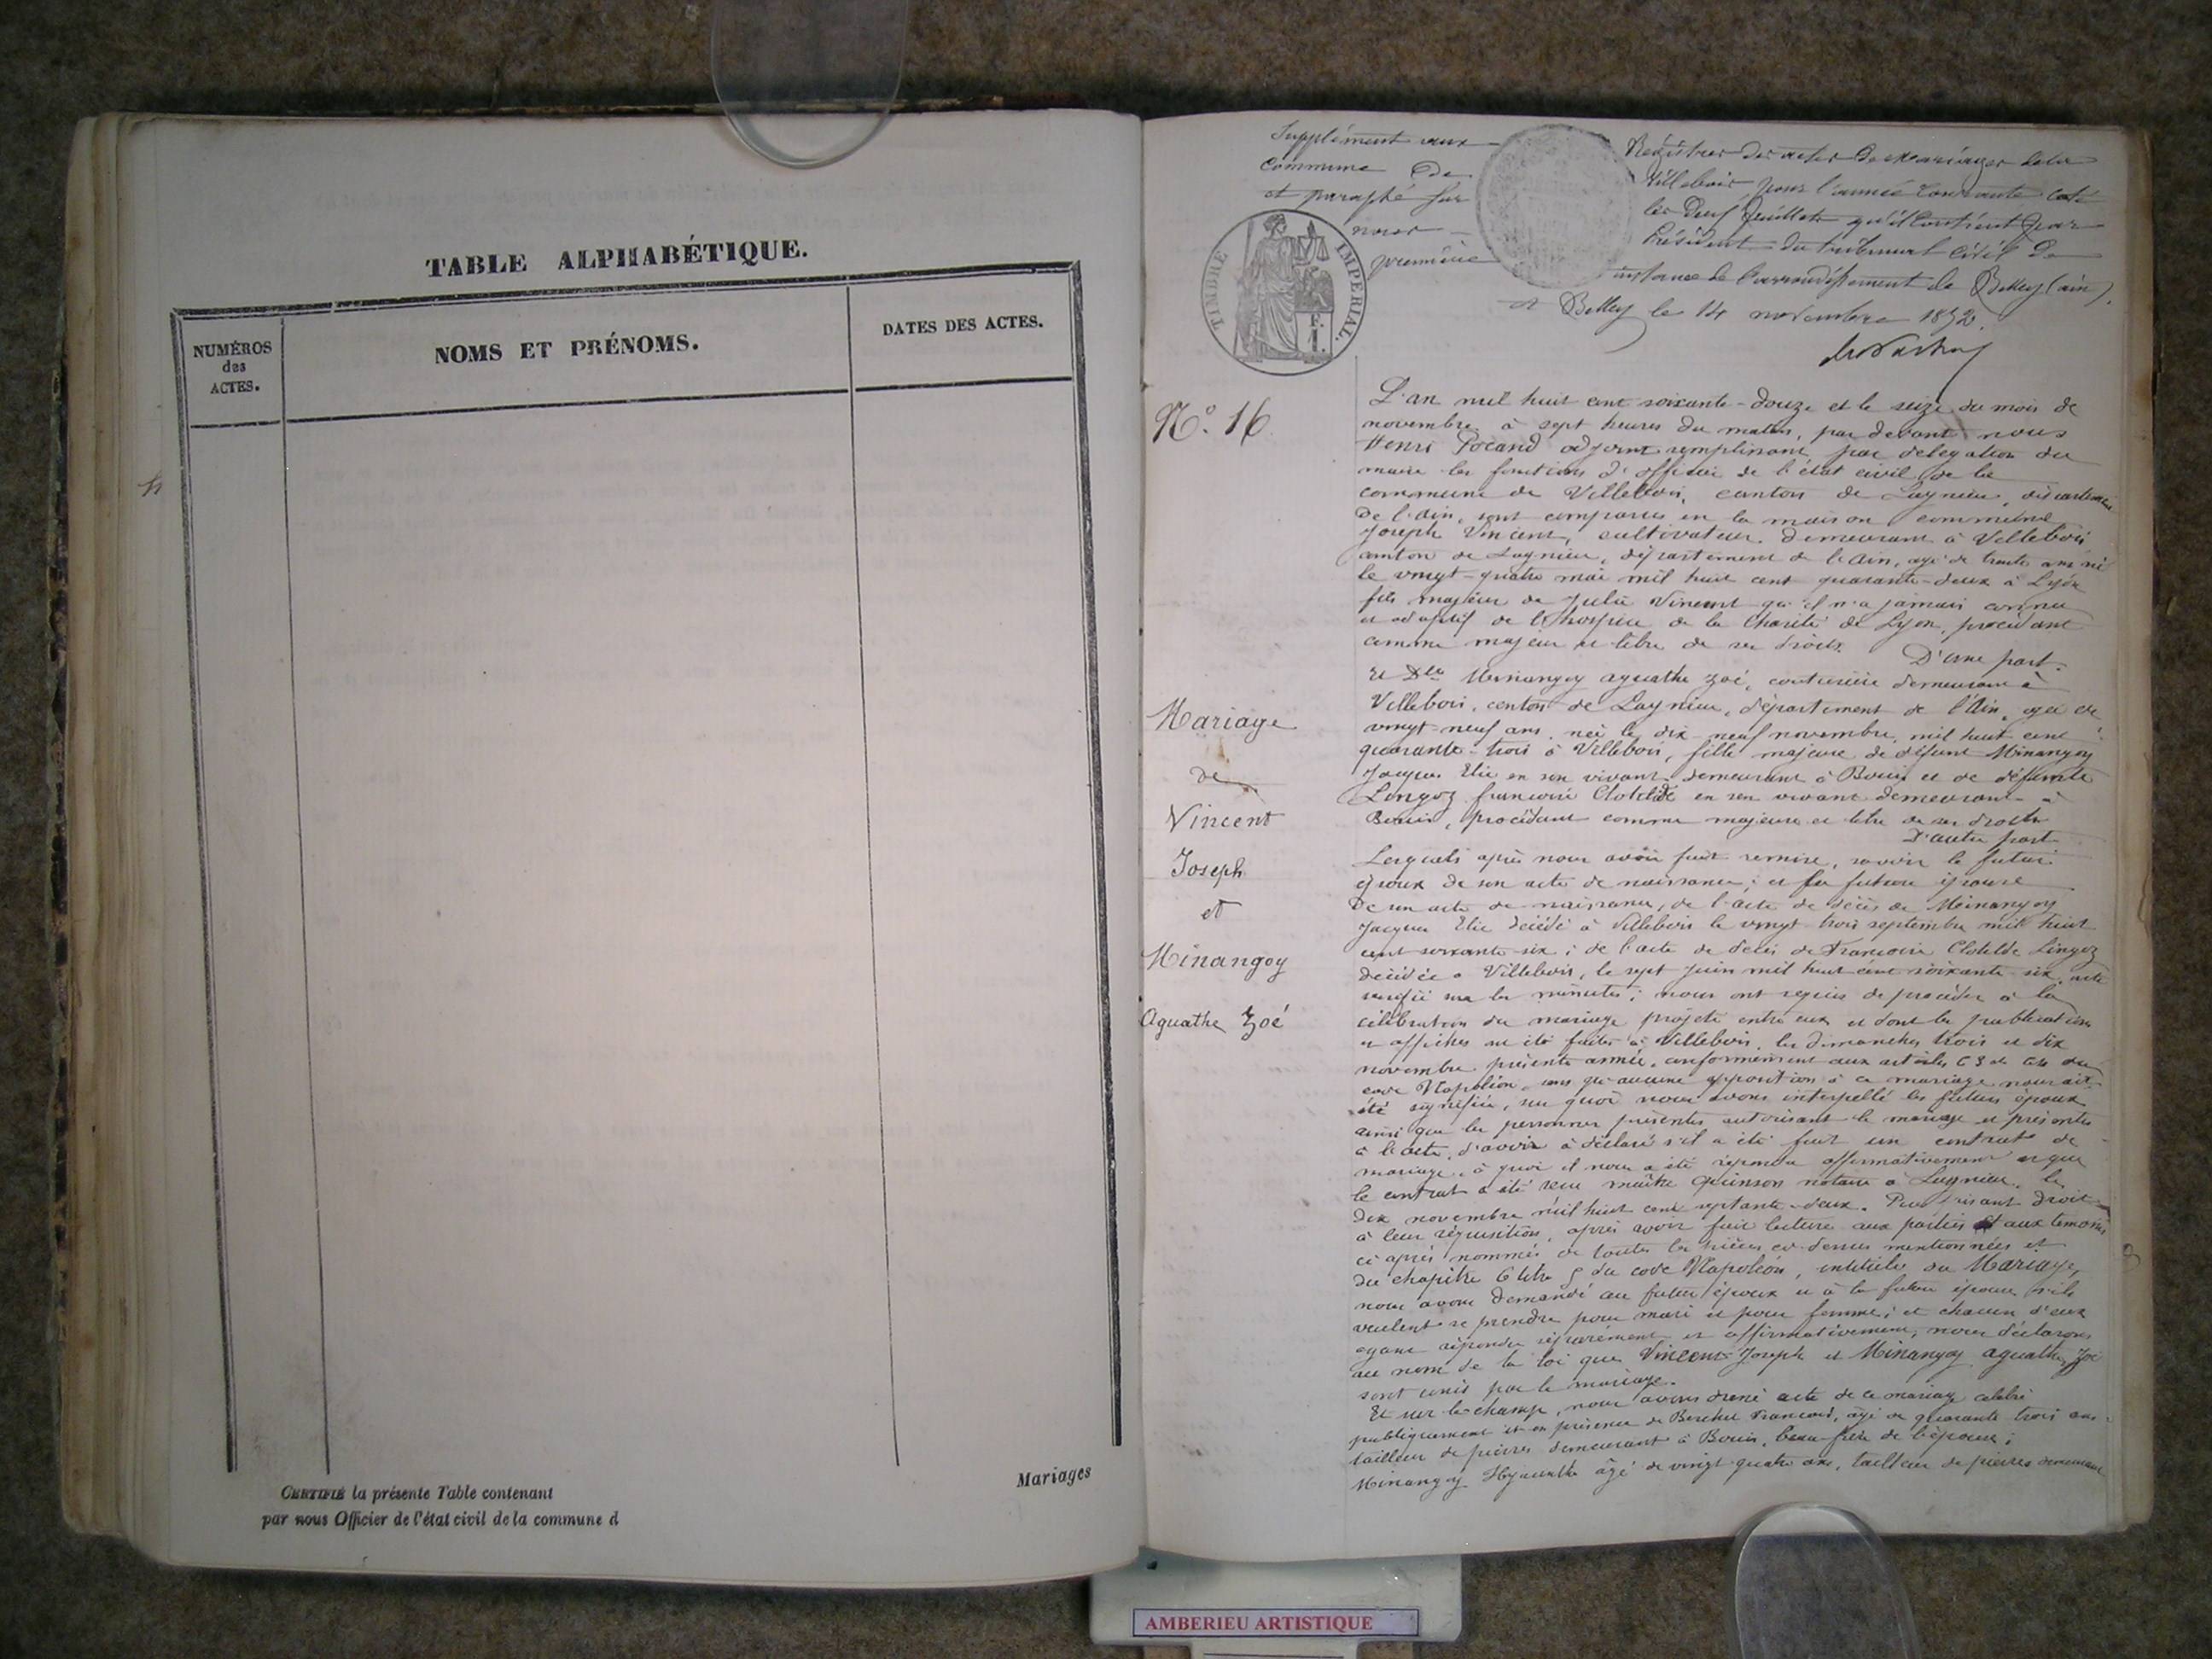 TABLE ALPHABÉTIQUE.
NUMÉROS
des
ACTES.
NOMS ET PRÉNOMS.
DATES DES ACTES.
CERTIFIÉ la présente Table contenant
Mariages
par nous Officier de l'état civil de la commune d
Supplément aux Registres des actes de mariages de la
Commune de Villebois pour l'année courante coté
et paraphé sur les deux feuillets qu'il contient par
nous Président du tribunal Civil de
première instance de l'arrondissement de Belley (ain).
TIMBRE IMPERIAL.
F.
1.
A Belley le 14 novembre 1872.
N.º 16
Mariage
de
Vincent
Joseph
et
Minangoy
Aguathe Zoé
L'an mil huit cent soixante-douze et le seize du mois de
novembre à sept heures du matin, par devant nous
Henri Pocand adjoint remplissant par délégation du
maire les fonctions d'officier de l'état civil de la
commune de Villebois, canton de Lagnieu, département
de l'Ain, sont comparus en la maison commune
Joseph Vincent, cultivateur demeurant à Villebois
canton de Lagnieu, département de l'Ain, agé de trente ans né
le vingt-quatre mai mil huit cent quarante-deux à Lyon
fils majeur de Julie Vincent qu'il n'a jamais connue
et adoptif de l'hospice de la Charité de Lyon, procédant
comme majeur et libre de ses droits. D'une part.
Et Dlle Minangoy aguathe Zoé, couturière demeurant à
Villebois, canton de Lagnieu, département de l'Ain, agée de
vingt-neuf ans, née le dix-neuf novembre, mil huit cent
quarante-trois à Villebois, fille majeure de défunt Minangoy
Jacques Elie en son vivant demeurant à Bouis et de défunte
Lingoz francoise Clotilde en son vivant demeurant à
Bouis, procédant comme majeure et libre de ses droits
D'autre part
Lesquels après nous avoir fait remise, savoir le futur
époux de son acte de naissance; et la future épouse
de son acte de naissance, de l'acte de décès de Minangoy
Jacques Elie décédé à Villebois le vingt trois septembre mil huit
cent soixante six; de l'acte de décès de Francoise Clotilde Lingoz
décédée à Villebois, le sept juin mil huit cent soixante-six, acte
vérifié sur les minutes; nous ont requis de procéder à la
célébration du mariage projeté entre eux et dont les publications
et affiches ont été faites à Villebois, les dimanches trois et dix
novembre présente année, conformément aux articles 63 et 64 du
code Napoléon, sans qu'aucune opposition à ce mariage nous ait
été signifiée, sur quoi nous avons interpellé les futurs époux
ainsi que les personnes présentes autorisant le mariage et présentes
à l'acte, d'avoir à déclaré s'il a été fait un contrat de
mariage, à quoi il nous a été répondu affirmativement et que
le contrat a été reçu maître Quinson notaire à Lagnieu, le
dix novembre mil huit cent septante-deux. Puis faisant droit
à leur réquisition, après avoir fait lecture aux parties et aux témoins
ci après nommés de toutes les pièces ci-dessus mentionnées et
du chapitre 6 titre 5 du code Napoléon, intitulé du Mariage,
nous avons demandé au futur époux et à la future épouse s'ils
veulent se prendre pour mari et pour femme; et chacun d'eux
ayant répondu séparément et affirmativement, nous déclarons
au nom de la loi que Vincent Joseph et Minangoy aguathe Zoé
sont unis par le mariage.
Et sur le champ, nous avons dressé acte de ce mariage célébré
publiquement et en présence de Berchet Francois, agé de quarante trois ans
tailleur de pierres demeurant à Bouis, beau-frère de l'épouse;
Minangoy Hyacinthe âgé de vingt quatre ans, tailleur de pierres demeurant
AMBERIEU ARTISTIQUE